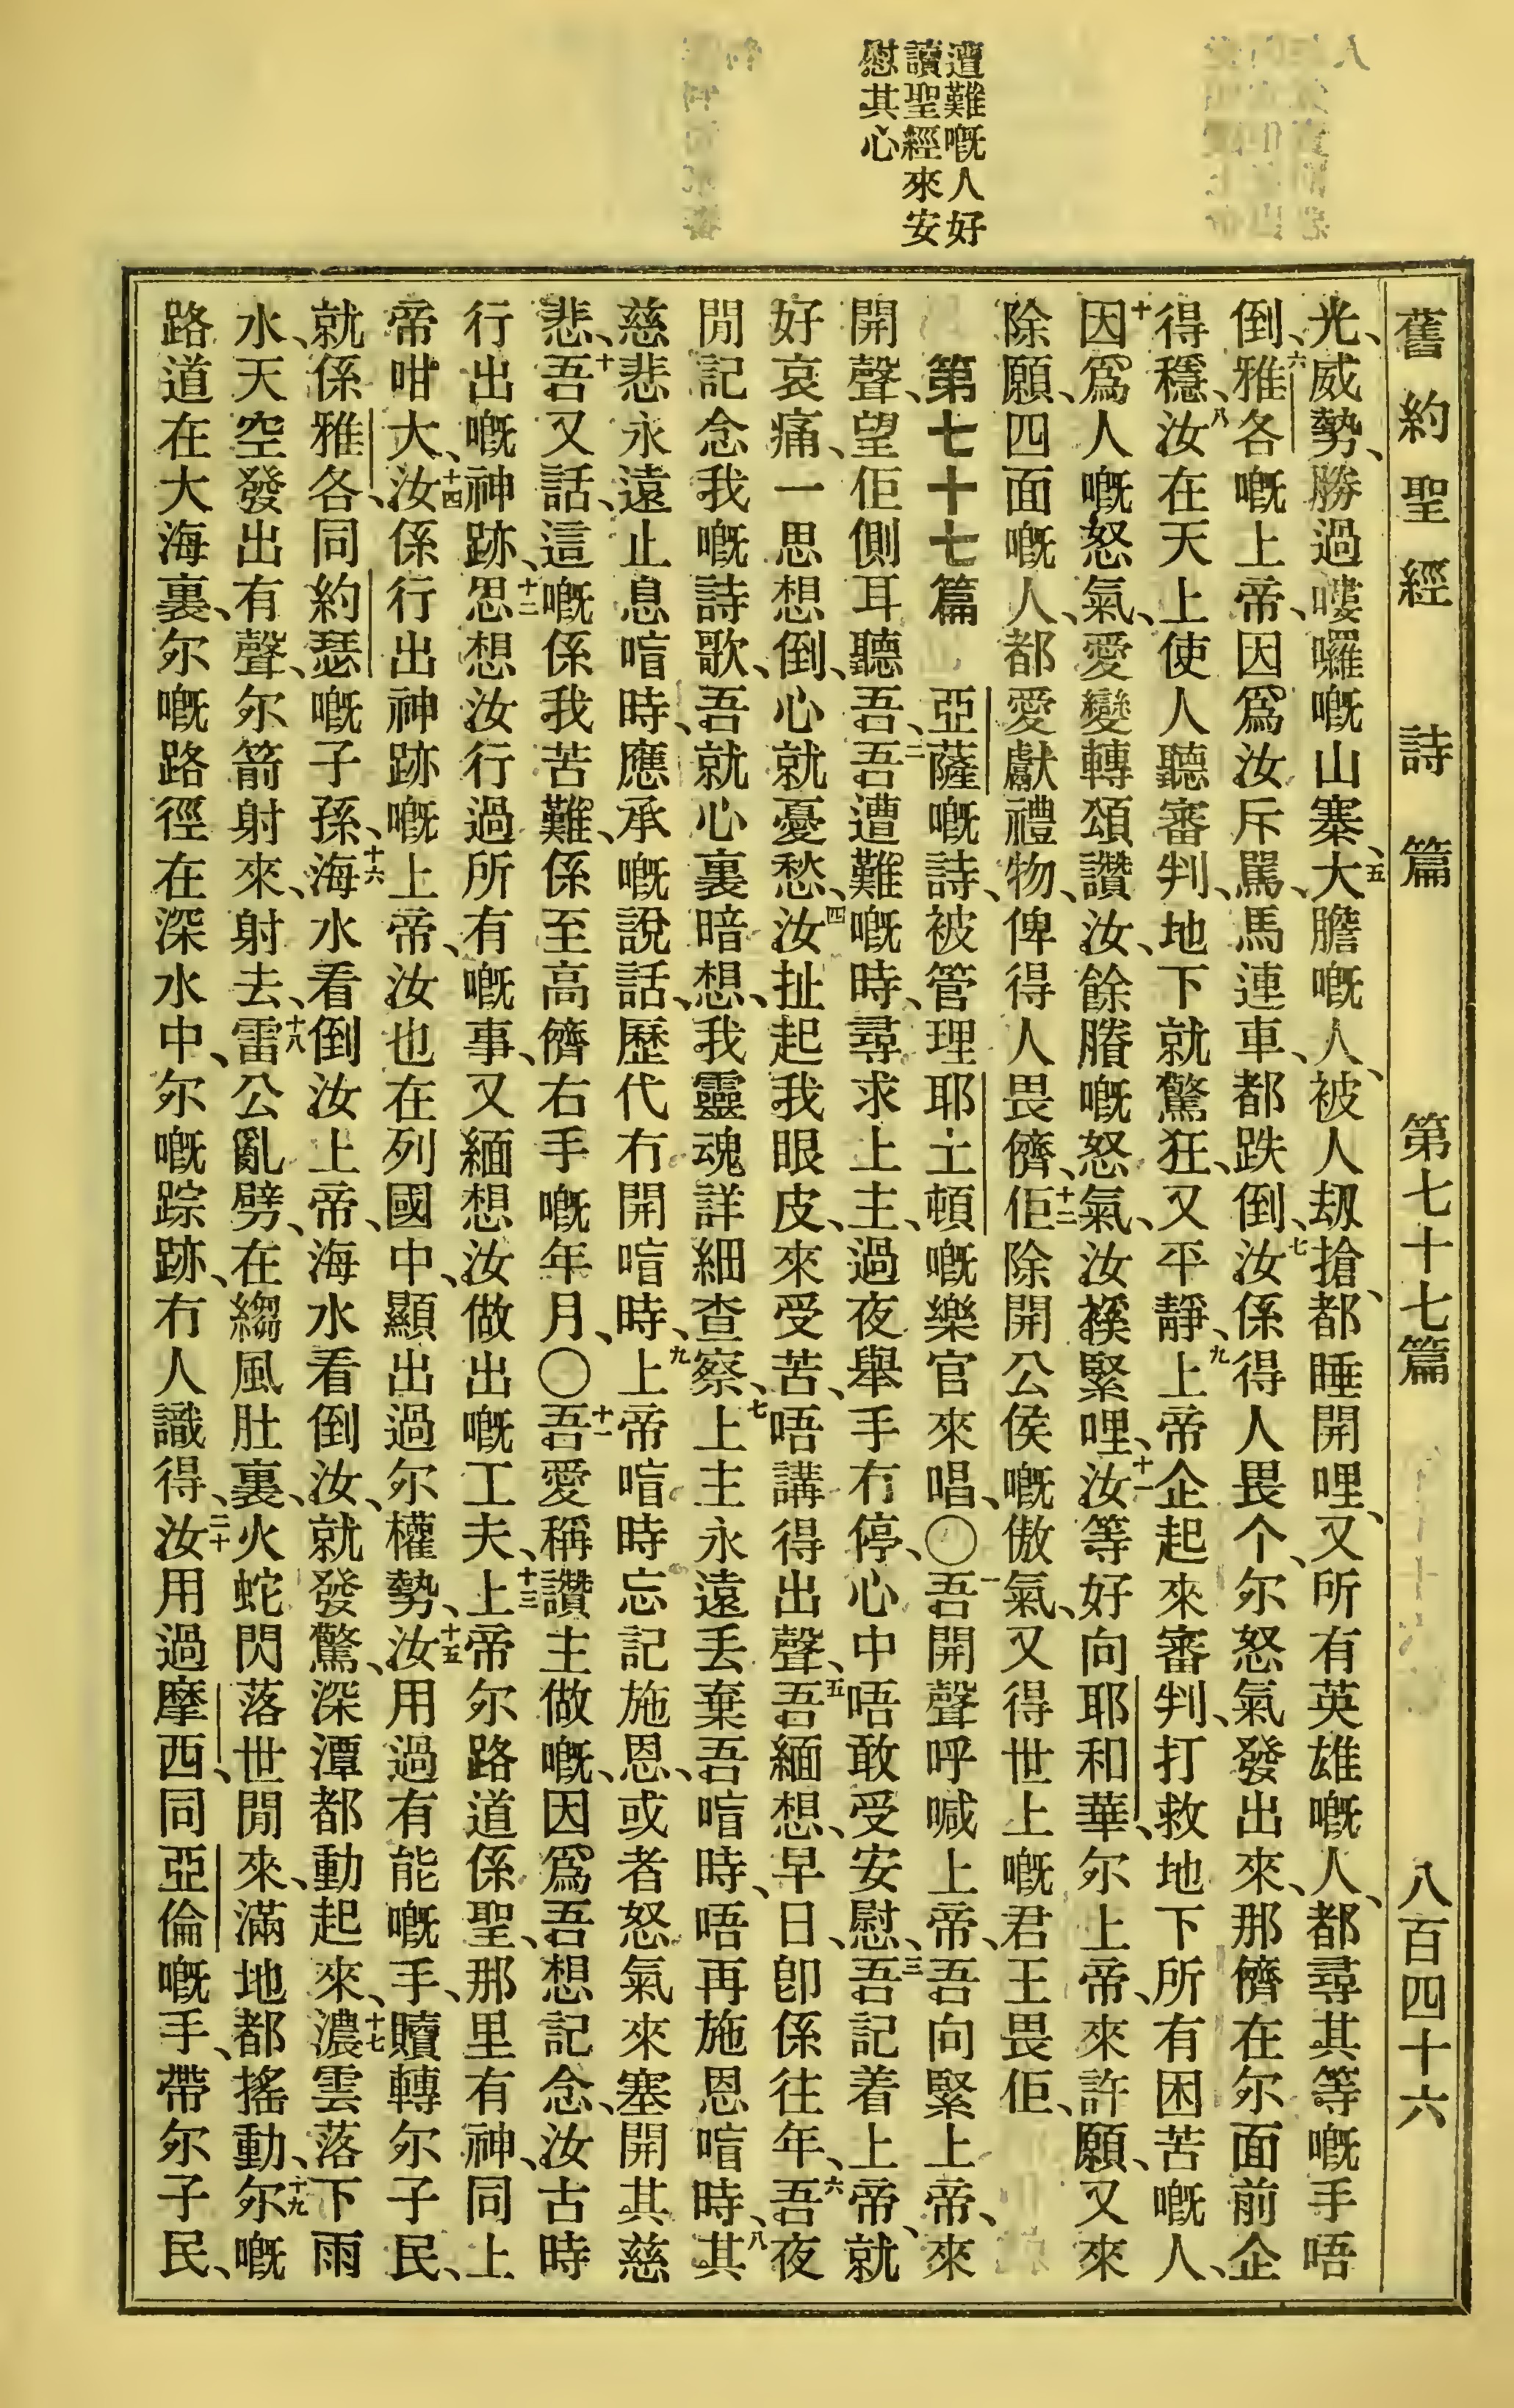 舊約聖經 詩篇 第七十七篇 八百四十六
遭難嘅人好
讀聖經來安
慰其心
光、威勢、勝過嘍囉嘅山寨、五大膽嘅人、被人刼搶、都睡開哩、又所有英雄嘅人、都尋其等嘅手唔
倒、六雅各嘅上帝、因爲汝斥駡、馬連車、都跌倒、七汝係得人畏个、尔怒氣發出來、那儕在尔面前企
得穩、八汝在天上使人聽審判、地下就驚狂、又平靜、九上帝企起來審判、打救地下所有困苦嘅人、
十因爲人嘅怒氣、愛變轉頌讚汝、餘賸嘅怒氣、汝緊哩、十一汝等好向耶和華、尔上帝、來許願、又來
除願、四面嘅人、都愛獻禮物、俾得人畏儕、十二佢除開公侯嘅傲氣、又得世上嘅君王畏佢、
第七十七篇 亞薩嘅詩、被管理耶土頓嘅樂官來唱、〇一吾開聲呼喊上帝、吾向緊上帝、來
開聲、望佢側耳聽吾、二吾遭難嘅時、尋求上主、過夜舉手冇停、心中唔敢受安慰、三吾記着上帝、就
好哀痛、一思想倒、心就憂愁、四汝扯起我眼皮、來受苦、唔講得出聲、五吾緬想、早日、卽係往年、六吾夜
閒記念我嘅詩歌、吾就心裏暗想、我靈魂詳細查察、七上主永遠丢棄吾喑時、唔再施恩喑時、八其
慈悲永遠止息喑時、應承嘅說話、歷代冇開喑時、九上帝喑時忘記施恩、或者怒氣來塞開其慈
悲、十吾又話、這嘅係我苦難、係至高儕右手嘅年月、〇十一吾愛稱讚主做嘅、因爲吾想記念、汝古時
行出嘅神跡、十二思想汝行過所有嘅事、又緬想汝做出嘅工夫、十三上帝尔路道係聖、那里有神、同上
帝咁大、十四汝係行出神跡嘅上帝、汝也在列國中、顯出過尔權勢、十五汝用過有能嘅手、贖轉尔子民、
就係雅各、同約瑟嘅子孫、十六海水看倒汝上帝、海水看倒汝、就發驚、深潭都動起來、十七濃雲落下雨
水、天空發出有聲、尔箭射來、射去、十八雷公亂劈、在縐風肚裏、火蛇閃落世閒來、滿地都搖動、十九尔嘅
路道在大海裏、尔嘅路徑在深水中、尔嘅踪跡、冇人識得、二十汝用過摩西、同亞倫嘅手、帶尔子民、